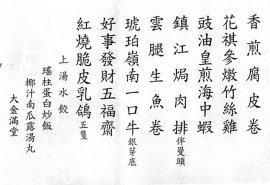 香煎腐皮卷
花祺參燉竹絲雞
豉油皇煎海中蝦
鎮江焗肉排 伴曼頭
雲腿生魚卷
琥珀嶺南一口牛 銀芽底
好事發財五福齋
紅燒脆皮乳鴿 五隻
上湯水餃
瑤柱蛋白炒飯
椰汁南瓜露湯丸
大金滿堂